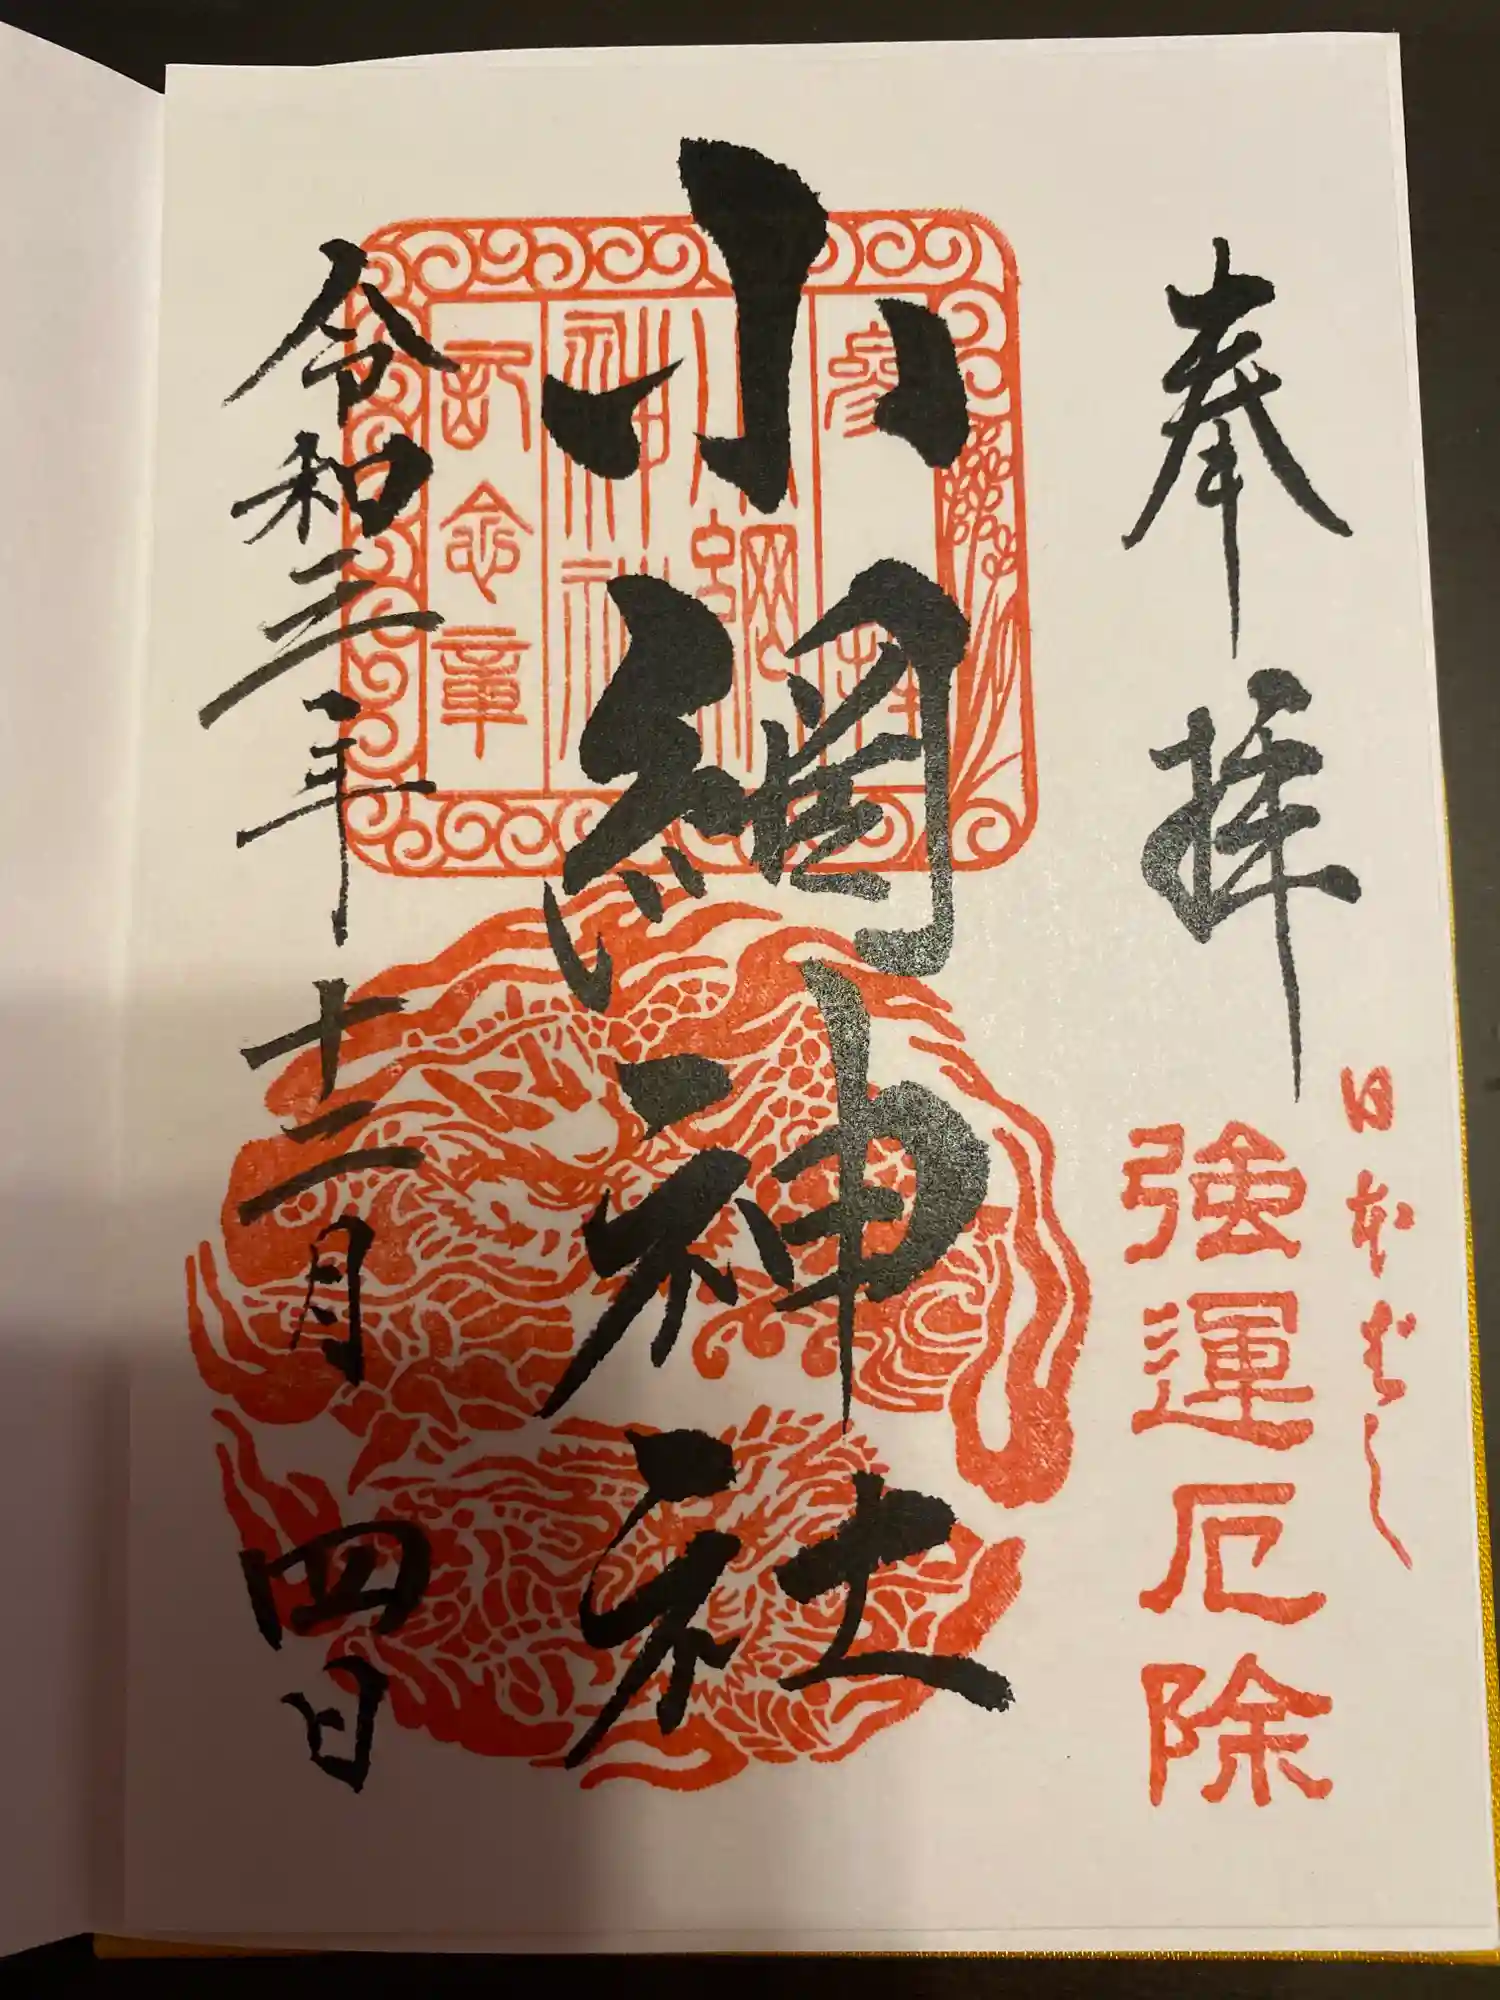 奉拝
日本ばし
強運厄除
小網神社
参拝
小網
神社
記念章
令和三年十二月四日